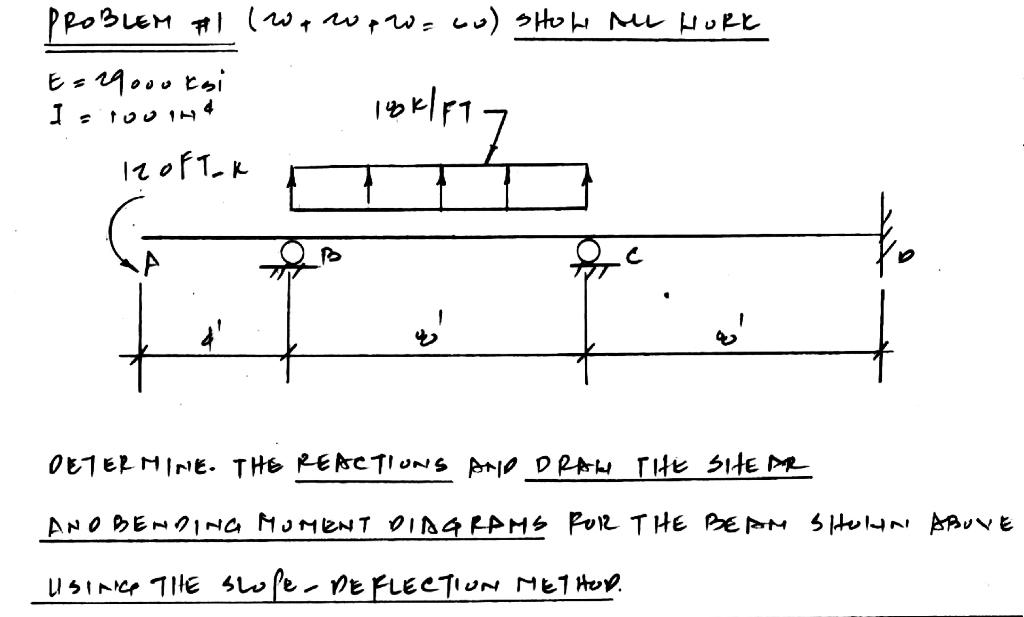 PROBLEM #1 (20+20+20=60) SHOW ALL WORK
E = 29000 Ksi
I = 100 IN⁴
18K/FT
120FT-K
A
B
C
D
4'
8'
8'
DETERMINE. THE REACTIONS AND DRAW THE SHEAR
AND BENDING MOMENT DIAGRAMS FOR THE BEAM SHOWN ABOVE
USING THE SLOPE-DEFLECTION METHOD.